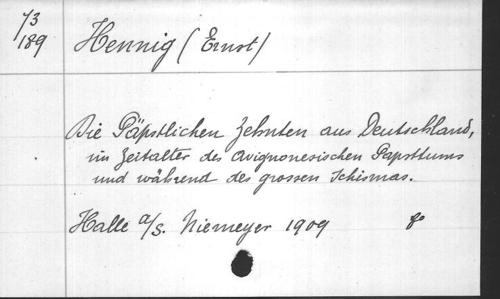 73
189
Hennig (Ernst)
Die Päpstlichen Zehnten aus Deutschland,
im Zeitalter des Avignonesischen Papsttums
und während des grossen Schismas.
Halle a/S. Niemeyer 1909 8°